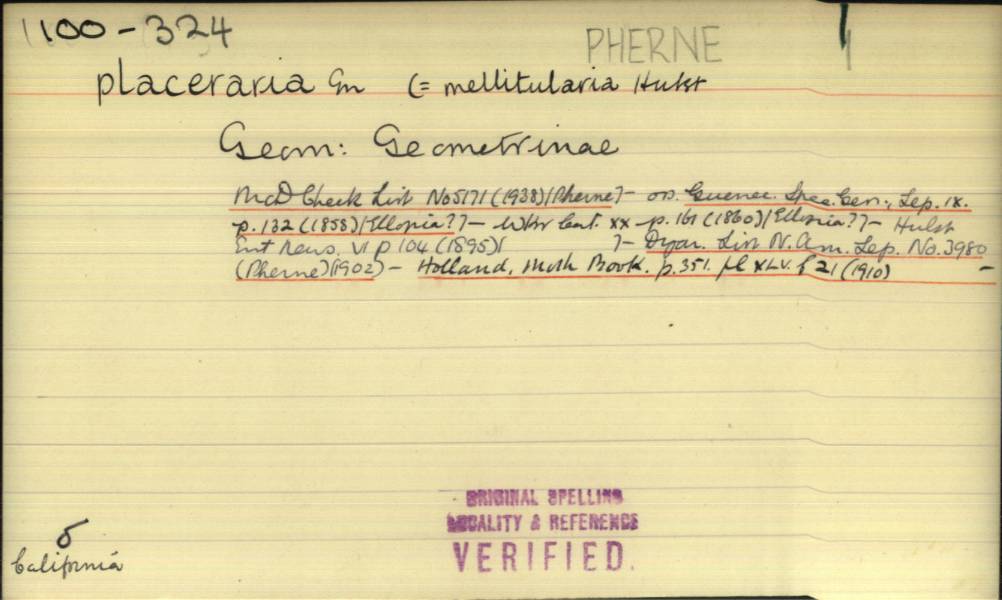 1100-324
PHERNE
placeraria Gn (= mellitularia Hulst
Geom: Geometrinae
McD Check List No 5171 (1938)[Pherne]- on. Guenee. Spec. Gen., Lep. IX.
p.132 (1858)[Ellopia?]- Wkr Cat. XX - p.161 (1860)[Ellopia?]- Hulst
Ent News. VI p 104 (1895)[ ]- Dyar. List N. Am. Lep. No. 3980
(Pherne)(1902) - Holland, Moth Book. p.351. pl XLV. f 21 (1910) -
ORIGINAL SPELLING
LOCALITY & REFERENCE
VERIFIED.
California